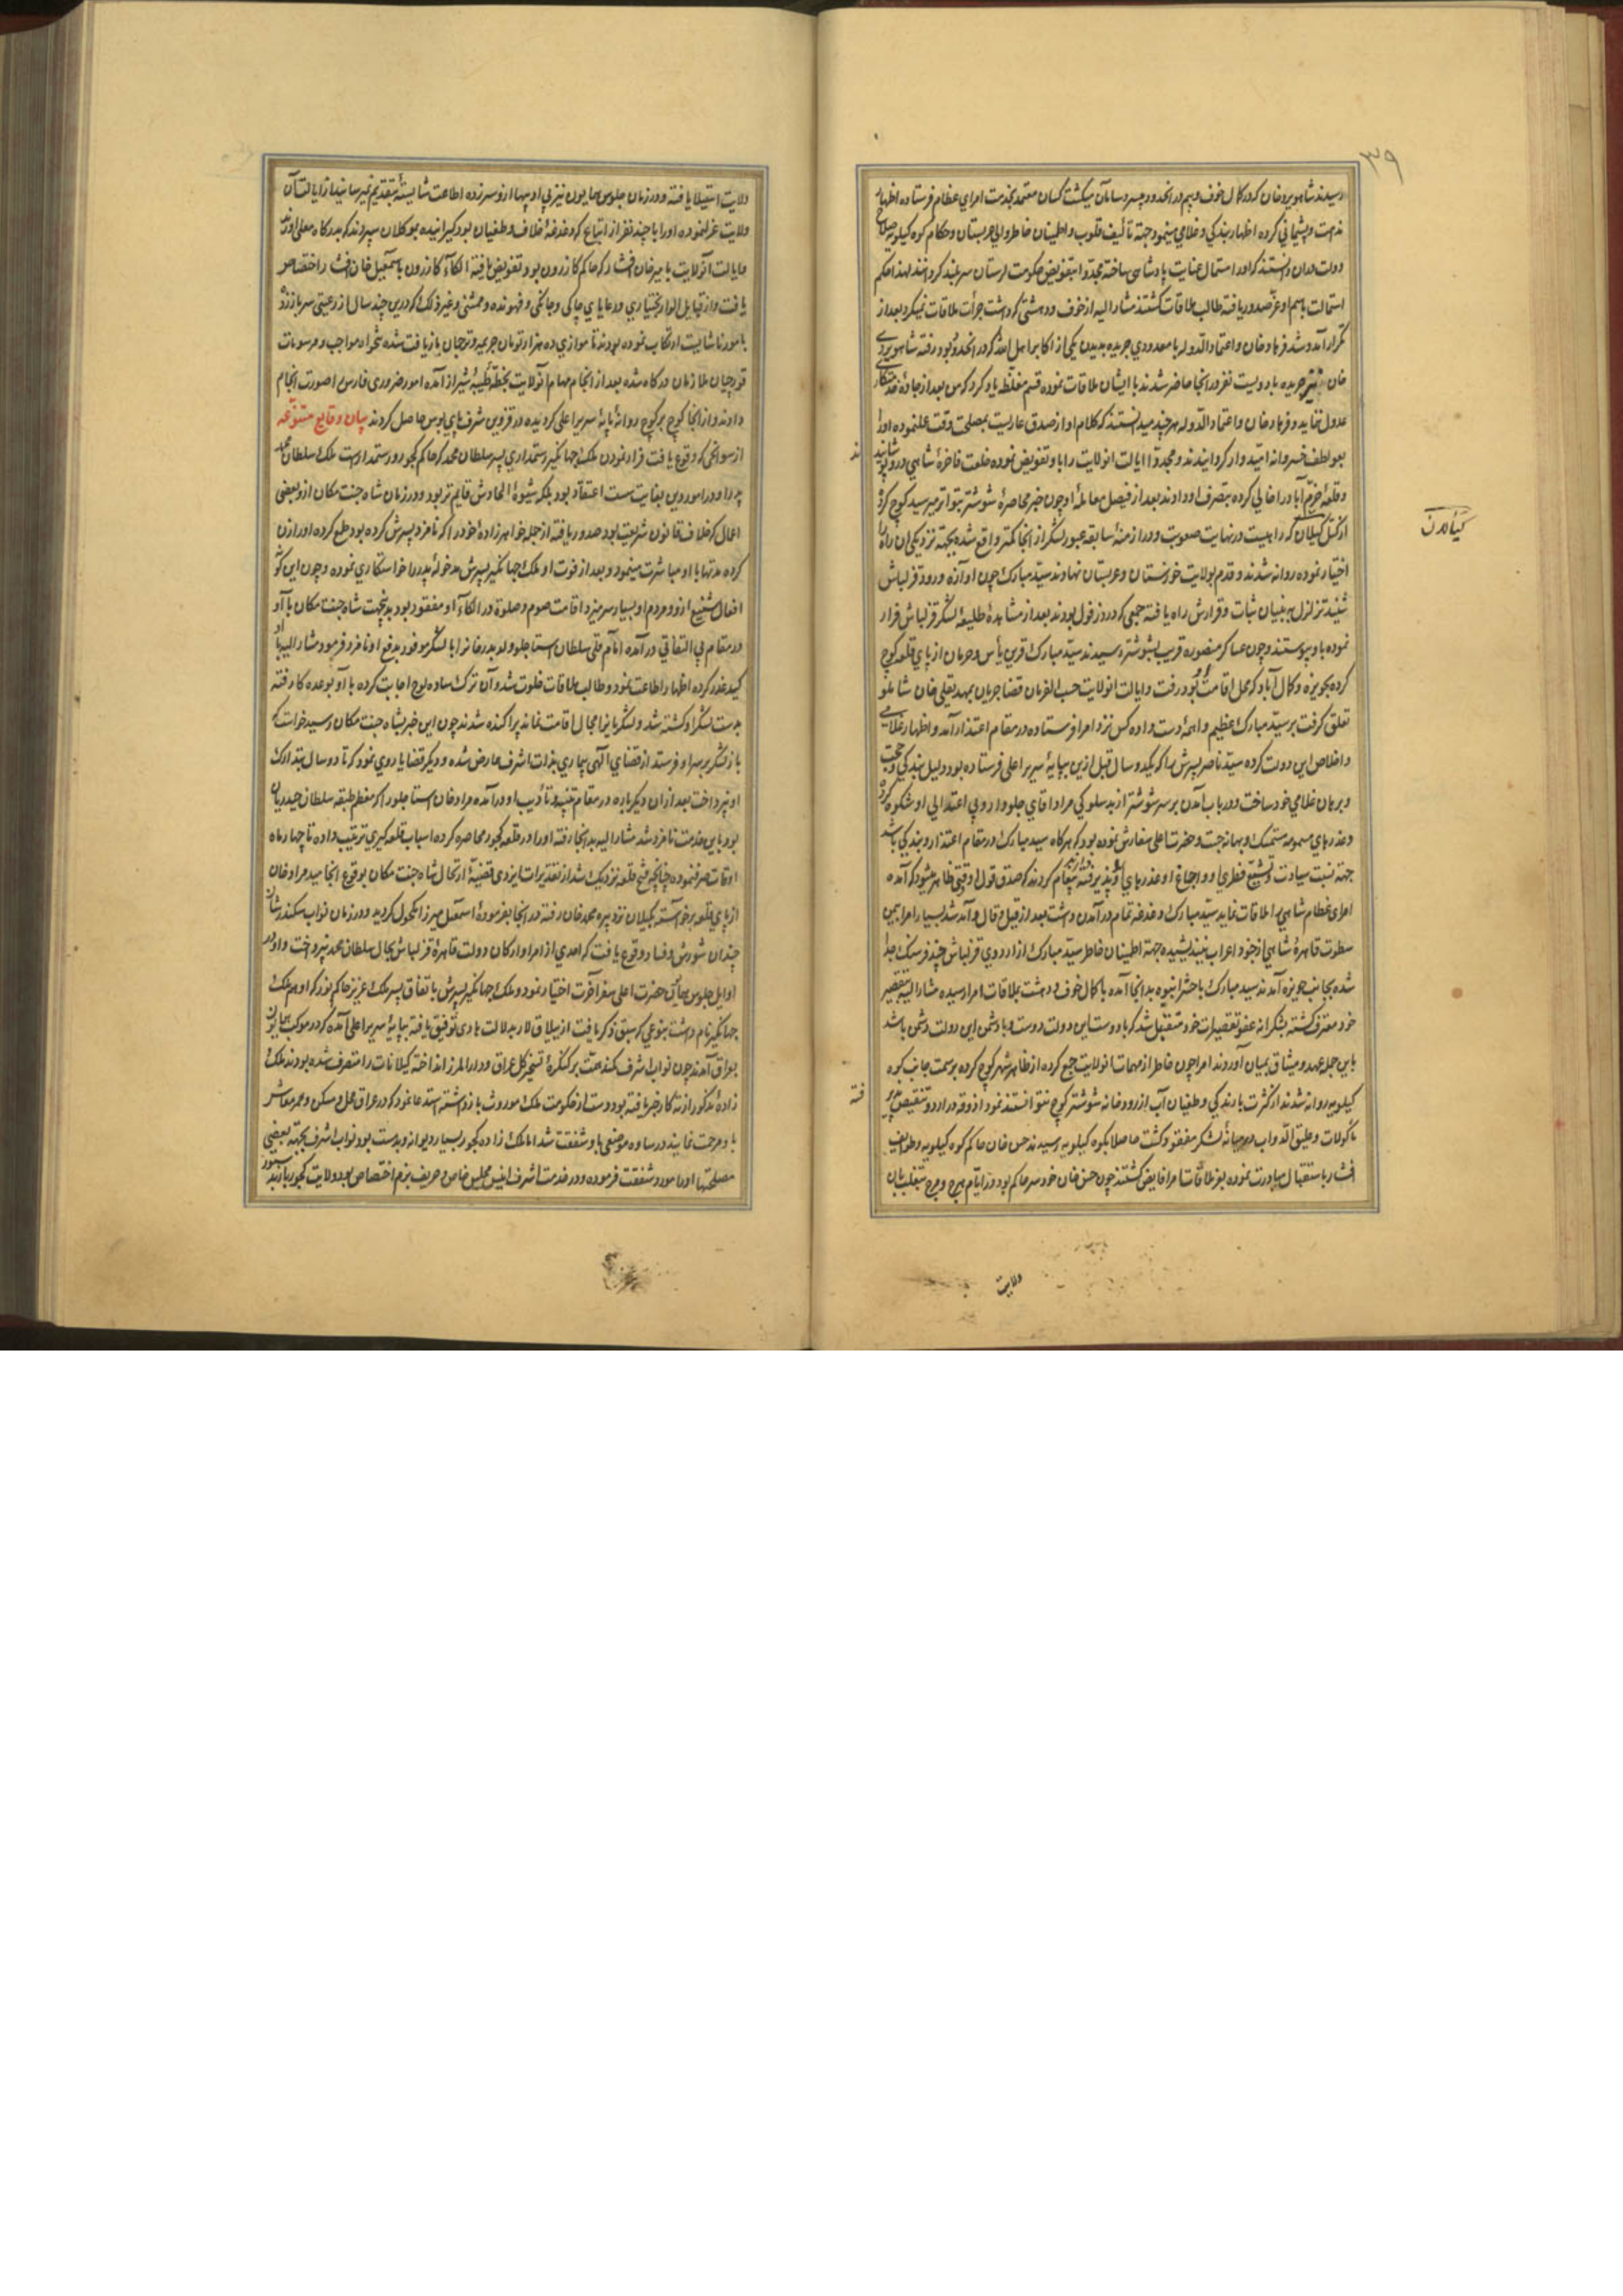 ۳۹
رسیدند شاهویردیخان که در کمال خوف و بیم در انحدود بی سر و سامان میگشت کسان معتمد بخدمت امرای عظام فرستاده اظهار
ندامت و پشیمانی کرده اظهار بندکی و غلامی مینمود جهته تألیف قلوب و اطمینان خاطر والی عربستان و حکام کوه کیلویه صلاح
دولت دران دانستند که اورا استمال عنایت پادشاهی ساخته مجددا بتفویض حکومت لرستان سربلند کردانند لهذا حکم
استمالت باسم او عز صدور یافته طالب ملاقات کشتند مشارالیه از خوف و دهشتی که داشت جرأت ملاقات نمیکرد بعد از
تکرار آمد و شد فرهاد خان و اعتماد الدوله با معدودی جریده بدیدن یکی از اکابر اهل الله که در انحدود بود رفته شاهویردی
خان نیز جریده با دویست نفر در انجا حاضر شدند با ایشان ملاقات نموده قسم مغلظه یاد کرد که من بعد از جاده خدمتکاری
عدول ننماید و فرهاد خان و اعتماد الدوله هرچند میدانستند که کلام او از صدق عاریست بمصلحت وقت عمل نموده اورا
بعواطف خسروانه امیدوار کردانیدند و مجددا ایالت انولایت را باو تفویض نموده خلعت فاخره شاهی درو پوشانیدند
و قلعه خرم آباد را خالی کرده بتصرف او دادند بعد از فیصل معامله او چون خبر محاصره شوشتر بتواتر میرسید کوچ کرده
از کتل کیلان که راهیست در نهایت صعوبت و در ازمنه سابقه عبور لشکر از انجا کمتر واقع شده بجهته نزدیکی ان راه را
کیالان
اختیار نموده روانه شدند و قدم بولایت خوزستان و عربستان نهادند سید مبارک چون اوازه ورود قزلباش
شنید تزلزل ببنیان ثبات و قرارش راه یافته جمعی که در دزفول بودند بعد از مشاهده طلیعه لشکر قزلباش فرار
نموده باو پیوستند و چون عساکر منصوره قریب بشوشتر رسیدند سید مبارک قرین یأس و حرمان از پای قلعه کوچ
کرده بحویزه و کمال آباد که محل اقامت او بود رفت و ایالت انولایت حسب الفرمان قضا جریان بمهدیقلی خان شاملو
تعلق کرفت بر سید مبارک عظیم واهمه دست داده کس نزد امرا فرستاده در مقام اعتذار آمد و اظهار غلامی
و اخلاص این دولت کرده سید ناصر پسرش را که یکدو سال قبل ازین بپایه سریر اعلی فرستاده بود دلیل بندکی و حجت
و برهان غلامی خود ساخت و در باب آمدن بر سر شوشتر از بدسلوکی مراد اقای جلودار و بی اعتدالی او شکوه کرده
و عذرهای مسموعه متمسک و بهانه جست و حضرت اعلی سفارش نموده بود که هرکاه سید مبارک در مقام اعتذار و بندکی باشد
جهته نسبت سیادت و تشیع فطری او و اجماع او عذرهای او پذیرفته پیغام کردند که صدق قول او وقتی ظاهر میشود که آمده
امرای عظام شاهی را ملاقات نماید سید مبارک دغدغه تمام در آمدن داشت بعد از قیل و قال و آمد شد بسیار امرا بیمن
سطوت قاهره شاهی از جنود اعراب نیندیشیده جهة اطمینان خاطر سید مبارک از اردوی قزلباش چند فرسنک جدا
شده بجانب حویزه آمدند سید مبارک با حشر انبوه بدانجا آمده با کمال خوف و دهشت بملاقات امرا رسیده مشارالیه بتقصیر
خود معترف کشته بشکرانه عفو تقصیرات خود متقبل شد که با دوست این دولت دوست و با دشمن این دولت دشمن باشد
باین جمله عهد و میثاق بمیان آوردند امرا چون خاطر از مهمات انولایت جمع کرده از ظاهر شهر کوچ کرده بر سمت جانب کوه
کیلویه روانه شدند از کثرت بارندکی و طغیان آب از رودخانه شوشتر کوچ نتوانستند نمود آذوقه در اردو تنقیص
ماکولات و علیق الدواب درمیانه لشکر مفقود کشت حاصلا بکوه کیلویه رسیدند حسن خان حاکم کوه کیلویه و طوایف
افشار باستقبال مبادرت نموده بعز ملاقات امرا فایض کشتند چون حسن خان خود سر حاکم بود و در ایام هرج و مرج بتغلب بان
ولایت
ولایت استیلا یافته و در زمان جلوس همایون نیز بی ادبیها ازو سر زده اطاعت شایسته بتقدیم نمیرسانید از ایالت آن
ولایت عزل نموده اورا با چند نفر از اتباع که دغدغه خلاف و طغیان بود کیرانیده بموکلان سپردند که بدرکاه معلی اورند
و ایالت آنولایت بامیرخان افشار که حاکم کازرون بود تفویض یافته الکاء کازرون باسمعیل خان افشار اختصاص
یافت و از قبایل الوار بختیاری و رعایای جاکی و جانکی و قهونده و ممسنی و غیر ذلک که درین چند سال از رعیتی سر باز زده
بامور ناشایست ارتکاب نموده بودند تا موازی ده هزار تومان جریمه و ترجمان بازیافت شده تنخواه مواجب و مرسومات
قورچیان ملازمان درکاه شده بعد از انجام مهام آنولایت بخطه طیبه شیراز آمده امور ضروری فارس را صورت انجام
دادند و از انجا کوچ بر کوچ روانه پایه سریر اعلی کردیده در قزوین شرف پای بوس حاصل کردند بیان وقایع متنوعه
از سوانحی که وقوع یافت فرار نمودن ملک جهانکیر رستمداری پسر سلطان محمد که حاکم کجور رستمدار است ملک سلطان محمد
پدر او در امور دین بغایت سست اعتقاد بود بلکه شیوه الحادش قایم تر بود و در زمان شاه جنت مکان ازو بعضی
اعمال که خلاف قانون شریعت بود صدور یافته از جمله خواهرزاده خود را که نامزد پسرش کرده بود طمع کرده اورا زن
کرده مدتها با او مباشرت مینمود و بعد از فوت او ملک جهانکیر پسرش مدخوله پدر را خواستکاری نموده و چون این کونه
افعال شنیع ازو و مردم او بسیار سر میزد اقامت صوم و صلوة در الکاء او مفقود بود بدینجهت شاه جنت مکان با او
در مقام بی التفاتی در آمده امام قلی سلطان استاجلو ولد بدرخانرا با لشکر موفور بدفع او نامزد فرمود مشارالیه با او
کید غدر کرده اظهار اطاعت نمود و طالب ملاقات خلوت شد و آن ترک ساده لوح اجابت کرده با او بوعده کاه رفته
بدست لشکر او کشته شد و لشکریانرا مجال اقامت نمانده پراکنده شدند چون این خبر بشاه جنت مکان رسید خواست که
باز لشکر بر سر او فرستد از قضای آلهی بیماری بذات اشرف عارض شده و دیکر قضایا روی نمود که تا دو سال بتدارک
او نپرداخت بعد از ان دیکرباره در مقام تنبیه و تأدیب او در آمده مراد خان استاجلو را که معظم طبقه سلطان حیدریان
بود باین خدمت نامزد شد مشارالیه بدانجا رفته اورا در قلعه کجور محاصره کرده اسباب قلعه کیری ترتیب داده تا چهار ماه
اوقات صرف نموده چنانچه فتح قلعه نزدیک شد از تقدیرات ایزدی قضیه ارتحال شاه جنت مکان بوقوع انجامید مراد خان
از پای قلعه برخواسته بکیلان نزد پیره محمد خان رفته در انجا بفرموده اسمعیل میرزا مکحول کردید و در زمان نواب سکندرشان
چندان شورش و فساد وقوع یافت که احدی از امرا و ارکان دولت قاهره قزلباش بحال سلطان محمد نپرداخت و او در
اوایل جلوس همایون حضرت اعلی سفر آخرت اختیار نمود و ملک جهانکیر پسرش باتفاق پسر ملک عزیز حاکم نور که او هم ملک
جهانکیر نام داشت بنوعی که سبق ذکر یافت از ییلاق لار بدلالت هادی توفیق یافته بپایه سریر اعلی آمده که در موکب همایون
بعراق آمدند چون نواب اشرف کمند همت بر کنکره تسخیر کل عراق و دار المرز انداخته کیلانات را متصرف شده بودند ملک
زاده مذکور از ته کار خبر یافته بود دست از حکومت ملک موروث باز داشته استدعا نمود که در عراق محل و مسکن و ممر معاش
باو مرحمت نمایند در ساوه موضعی باو شفقت شد اما ملک زاده کجور بسیار دیوانه و بدمست بود نواب اشرف بجهته بعضی
مصلحتها اورا مورد شفقت فرموده و در خدمت اشرف انیس مجلس خاص و حریف بزم اختصاص بود و ولایت کجور را بدستور